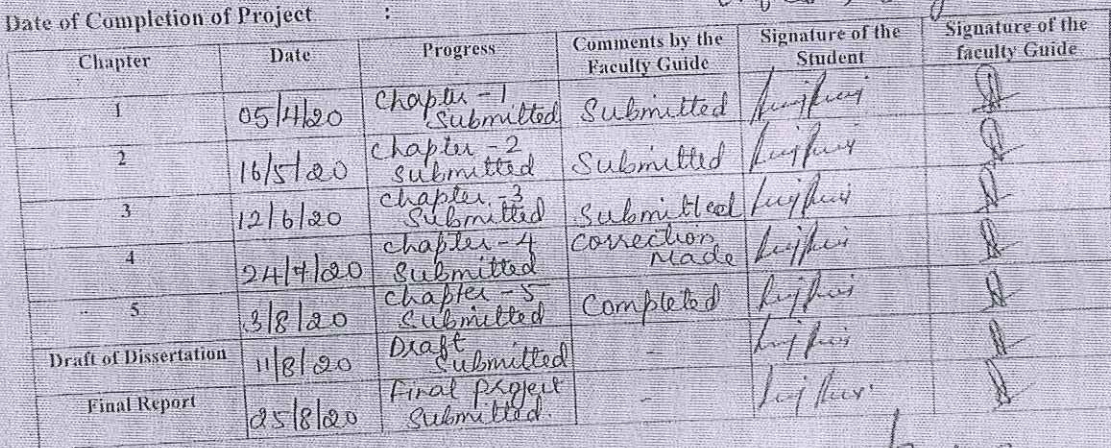 Date of Completion of Project :
Chapter Date Progress Comments by the Faculty Guide Signature of the Student Signature of the faculty Guide
1 05/4/20 Chapter - 1 Submitted Submitted
2 16/5/20 Chapter - 2 Submitted Submitted
3 12/6/20 chapter - 3 Submitted Submitted
4 24/7/20 chapter - 4 Submitted Correction Made
5 3/8/20 chapter - 5 Submitted Completed
Draft of Dissertation 11/8/20 Draft Submitted -
Final Report 25/8/20 Final project Submitted. -